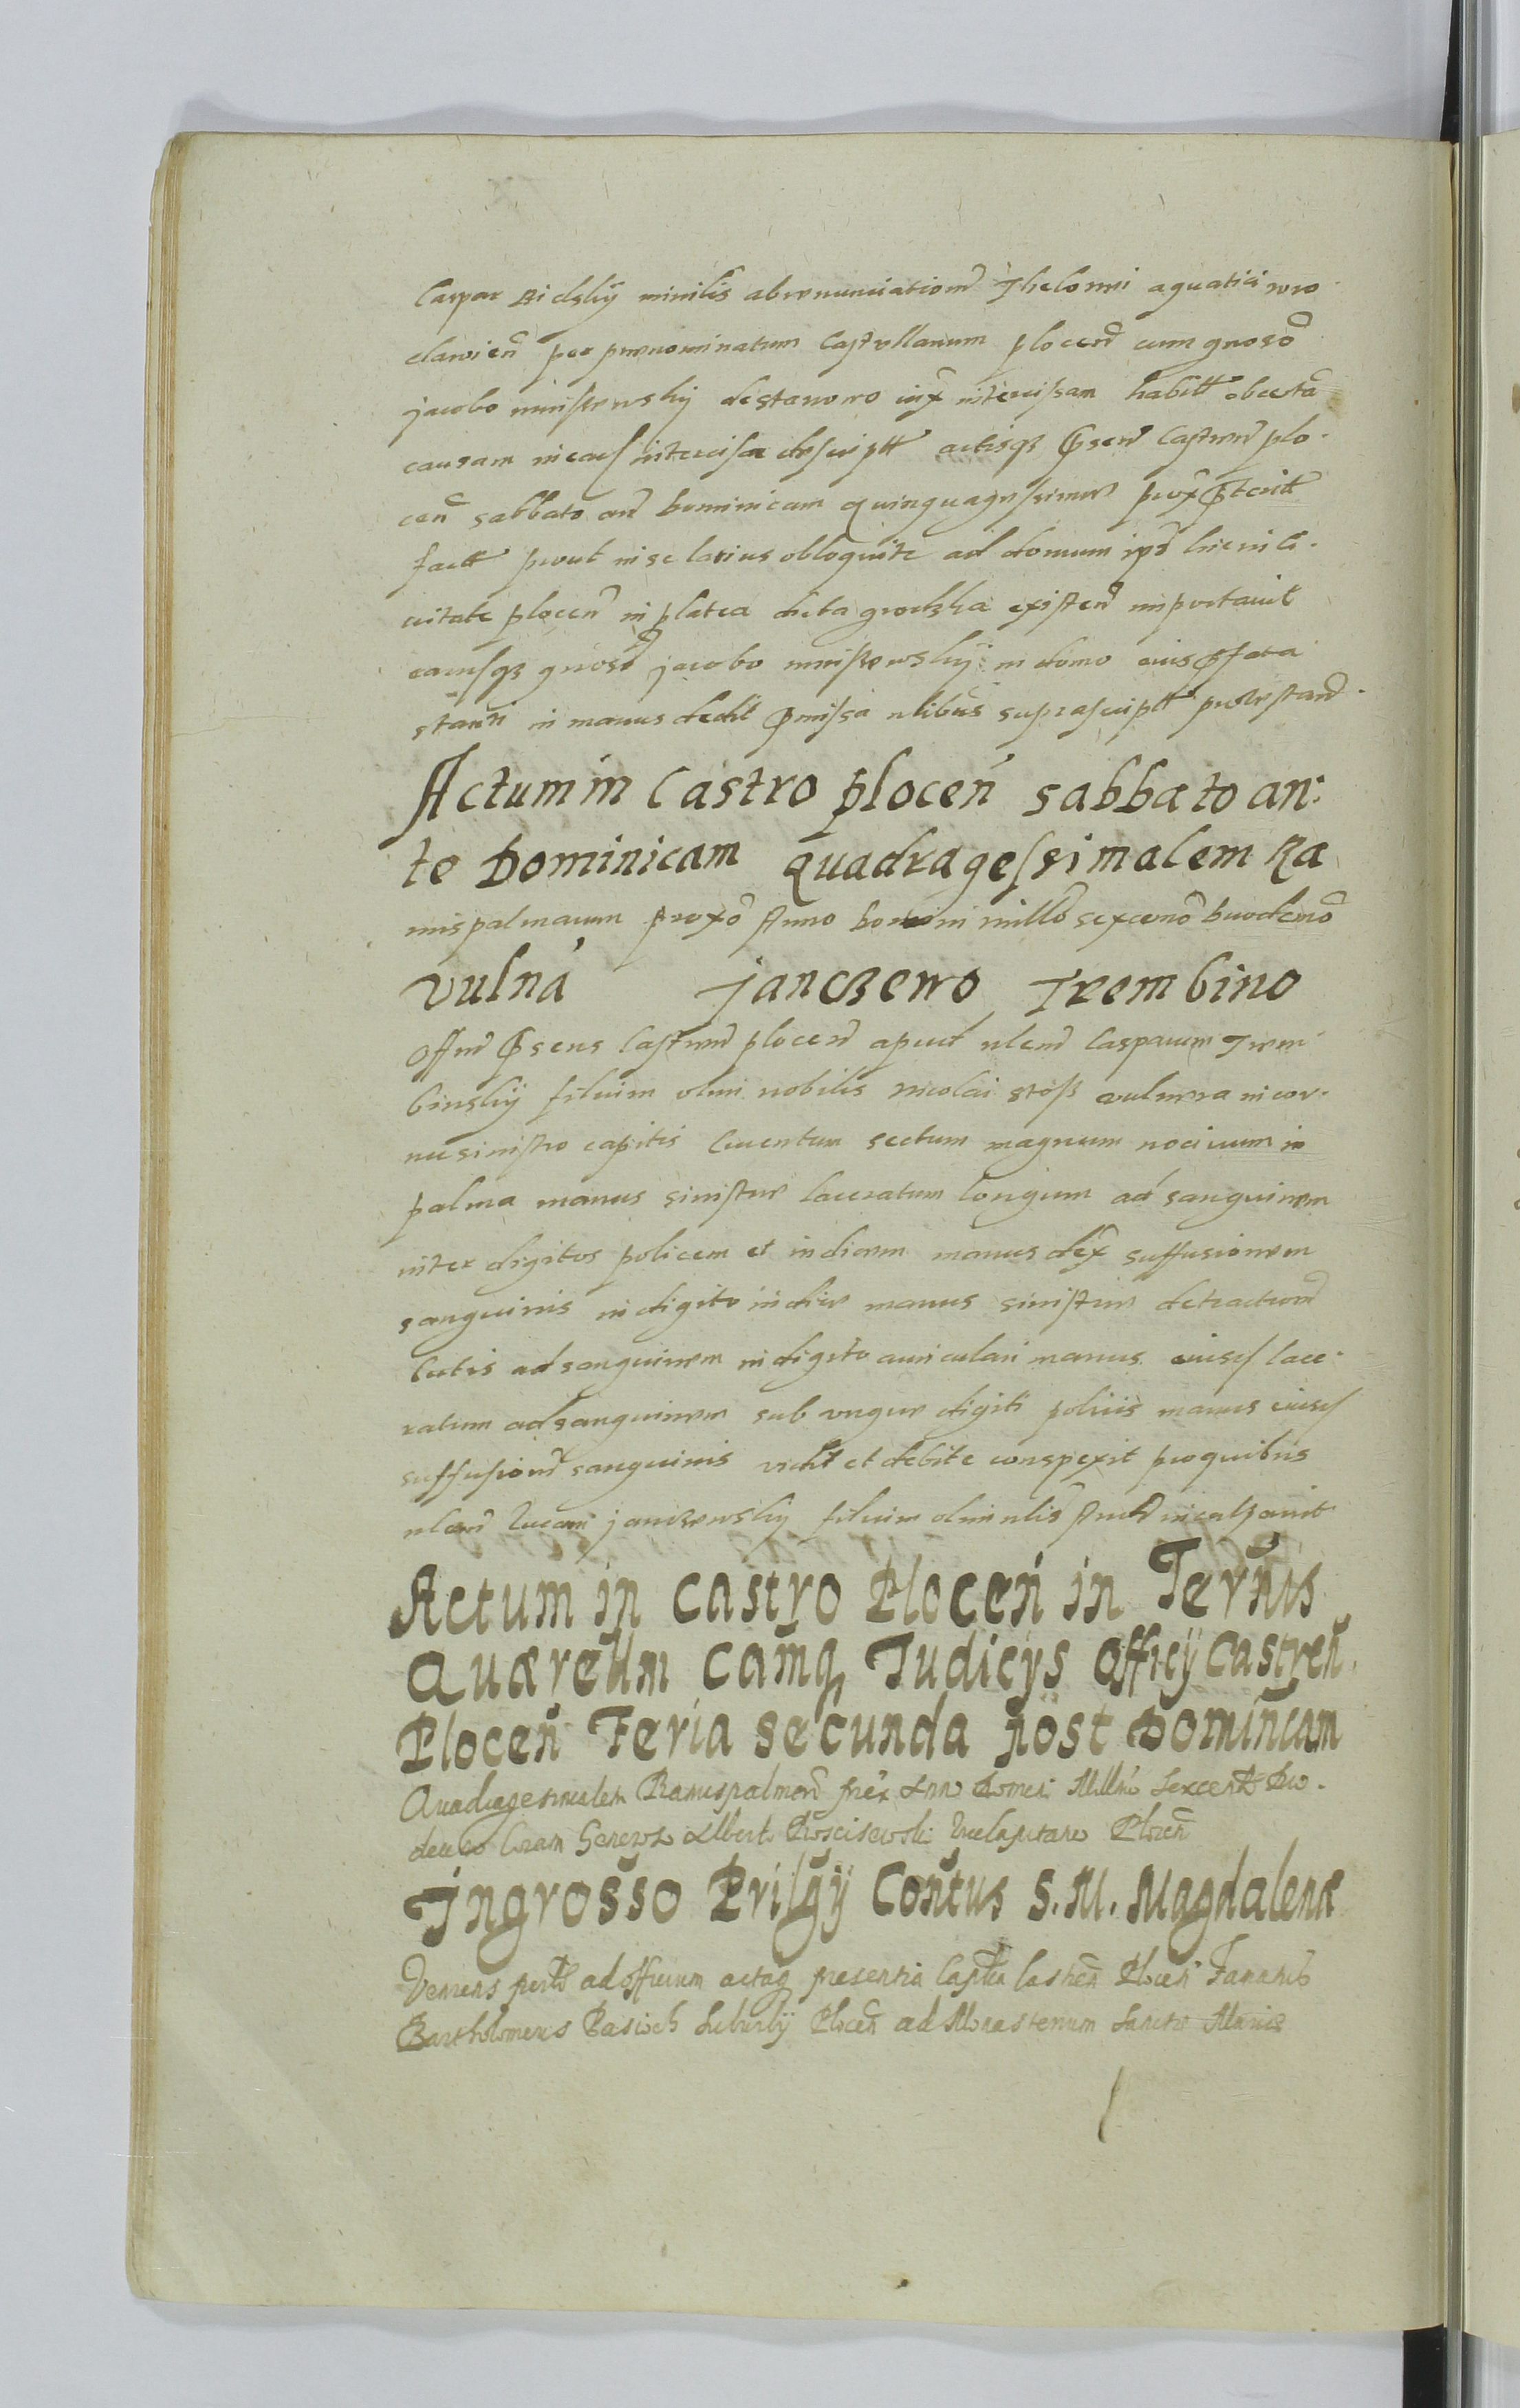 Caspar Ridzkÿ minilis abrenunciatiom̃ Thelonei aquatici wro
clavien̄ per prænominatum Castellanum plocen̄ cum gnoso
jacobo miszewskÿ de stanowo iux intercisam habitt ob certã
causam in eads intercisa descriptt actisqz Pñsen̄ Castren̄ plo.
cen̄ sabbato an̄ Dominicam Quinquagessimæ prox Pteritt
factt prout in se latius obloquitr ad domum ips̃ hic in ci.
vitate plocen̄ in platea dicta grodzka existen̄ importavit
eamsqz gnoso jacobo miszewskÿ in domo eius Pfata
stanti in manus dedit Pmissa nlibus suprascriptt protestan̄.
Actum in Castro plocen̄ sabbato an:
te Dominicam Quadragessimalem Ra
mispalmarum proxõ Anno Domini millõ sexcenõ duodenõ
Vulna Janczewo Trembino
Offm̄ Psens Castren̄ plocen̄ apud nlem̄ Casparum Trem
binskÿ filium olim nobilis Nicolai vulnera in cor.
nu sinistro capitis cruentum sectum magnum nocivum in
palma manus sinistræ laceratum longum ad sanguinem
inter digitos policem et indicem manus dex̃ suffusionem
sanguinis in digito indice manus sinistræ detractiom̃
Cutis ad sanguinem in digito auriculari manus eiusds lace.
ratum ad sanguinem sub ungue digiti policis manus eiusds
suffusiom̃ sanguinis vidit et debite conspexit pro quibus
nlem̄ Lucam janczewskÿ filium olim nlis inculpavit
Actum in Castro Plocen̄ in Terñis
Quærellm̃ Cam̃q Judicys Officÿ Castren̄.
Plocen̄ Feria secunda post Dominicam
Quadragesimalem Ramispalmar̃ prox Ann Domini Millmo Sexcento Duo.
decimo Coram Generoso Alberto Kroscisewski Vicecapitaneo Plocen̄
Ingrosso Prilgÿ Conꝟtus S. M. Magdalenæ
Veniens perlr ad officium actaq presentia Capitlia Castren̄ Plocen̄ Famatus
Bartholomeus Suburbÿ Plocen̄ ad Monasterium Sanctæ Mariæ